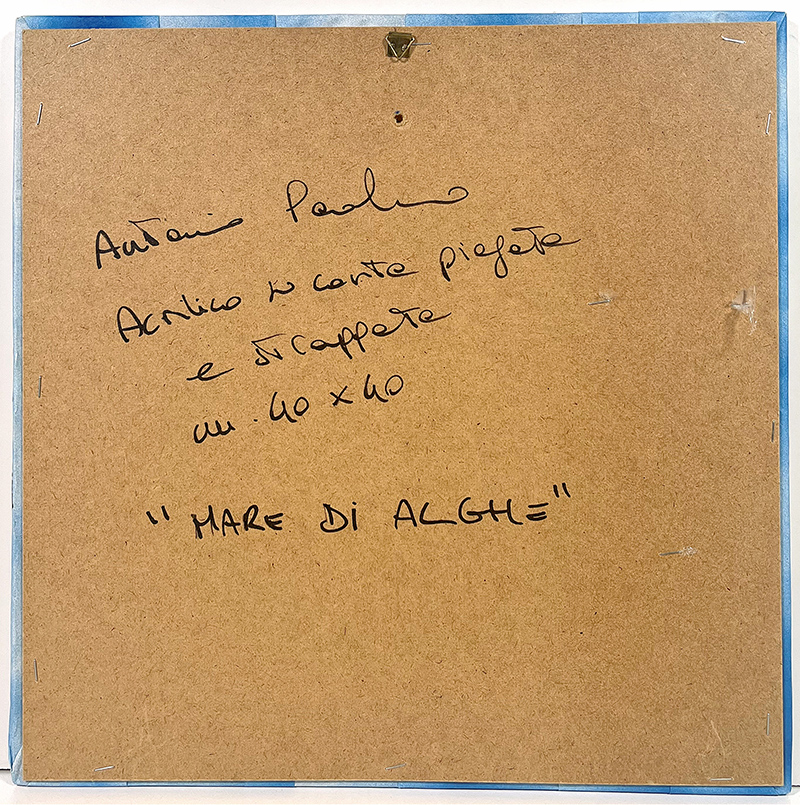 Antonio Paolino
Acrilico su carta piegata
e strappata
cm. 40 x 40
"MARE DI ALGHE"